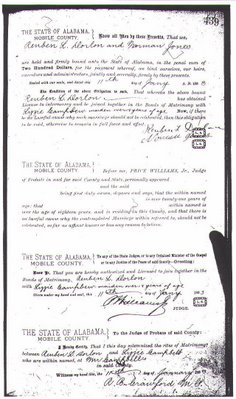 THE STATE OF ALABAMA,
MOBILE COUNTY.
Know all Men by these Presents, That we,
Reuben L. Dorlon and Norman Jones
are held and firmly bound unto the State of Alabama, in the penal sum of
Two Hundred Dollars, for the payment whereof, we bind ourselves, our heirs,
executors and administrators, jointly and severally, firmly by these presents.
Sealed with our seals, and dated this 11th day of Jany
The Condition of the above Obligation is such, That whereas the above bound
Reuben L. Dorlon has obtained
License to intermarry and be joined together in the Bonds of Matrimony with
Lizzie Campbell
be lawful cause why such marriage should not be celebrated, then this obligation
to be void, otherwise to remain in full force and effect.
THE STATE OF ALABAMA,
MOBILE COUNTY.
Before me, PRICE WILLIAMS, Jr. Judge
of Probate in and for said County and State, personally appeared
and the said
being first duly sworn, deposes and says, that the within named
is over twenty-one years
of age; that within named is
over the age of eighteen years, and is residing in this County, and that there is
no lawful reason why the contemplated Marriage within referred to, should not be
celebrated, so far as affiant knows or has any reason to believe.
THE STATE OF ALABAMA,
MOBILE COUNTY.
To any of the State Judges, or to any Ordained Minister of the Gospel
or to any Justice of the Peace of said County.—Greeting:
Know Ye, That you are hereby authorized and Licensed to join together in the
Bonds of Matrimony, Reuben L. Dorlon
and Lizzie Campbell
Given under my hand and seal, this 11th day of Jany
JUDGE.
THE STATE OF ALABAMA,
MOBILE COUNTY.
To the Judge of Probate of said County:
I Hereby Certify, That I this day solemnized the rites of Matrimony
between Reuben L. Dorlon and Lizzie Campbell
who are within named, at
Witness my hand, this day of January